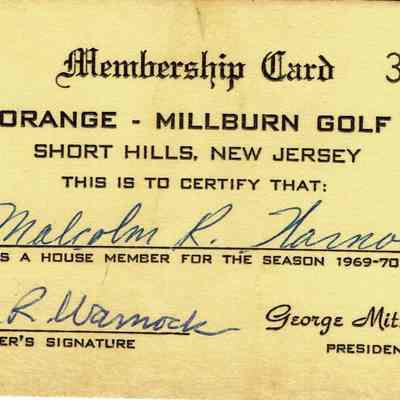 Membership Card 3
ORANGE - MILLBURN GOLF
SHORT HILLS, NEW JERSEY
THIS IS TO CERTIFY THAT:
Malcolm R. Warno
S A HOUSE MEMBER FOR THE SEASON 1969-70
R Warnock George Mit
ER'S SIGNATURE PRESIDEN